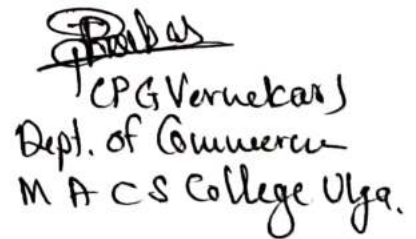 (P G Vernekar)
Dept. of Commerce
M A C S College Ulga.